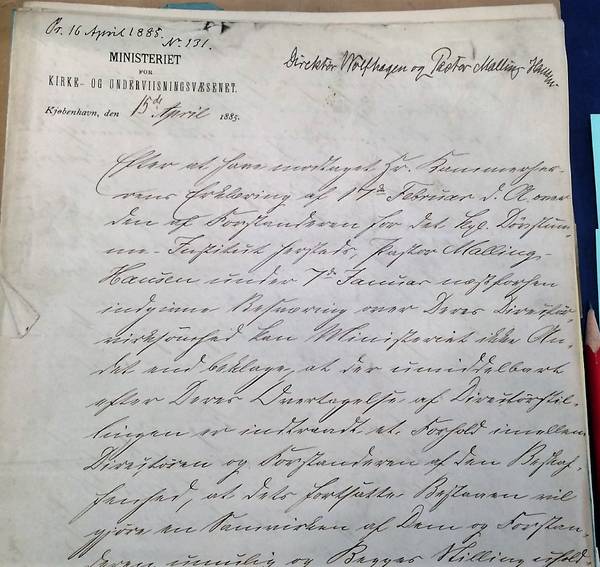 Pr. 16 April 1885.
No. 131.
Direktør Wolfhagen og Pastor Malling Hansen
MINISTERIET
FOR
KIRKE- OG UNDERVIISNINGSVÆSENET.
Kjøbenhavn, den 15de April 1885.
Efter at have modtaget Hr. Kammerher-
rens Erklæring af 17de Februar d. A. over
den af Forstanderen for det kgl. Døvstum-
me-Institut hersteds, Pastor Malling-
Hansen under 7de Januar næstforhen
indgivne Besværing over Deres Direktør-
virksomhed kan Ministeriet ikke An-
det end beklage, at der umiddelbart
efter Deres Overtagelse af Direktørstil-
lingen er indtraadt et Forhold imellem
Direktøren og Forstanderen af den Beskaf-
fenhed, at dets fortsatte Bestaaen vil
gjøre en Samvirken af Dem og Forstan-
deren umulig og Begges Stilling uhold-